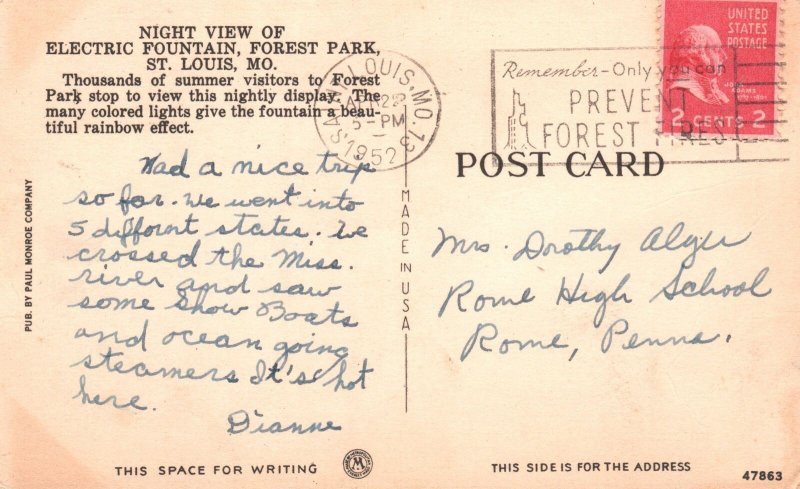 NIGHT VIEW OF
ELECTRIC FOUNTAIN, FOREST PARK,
ST. LOUIS, MO.
Thousands of summer visitors to Forest
Park stop to view this nightly display. The
many colored lights give the fountain a beau-
tiful rainbow effect.
Had a nice trip
so far. We went into
5 differnt states. We
crossed the Miss.
river and saw
some show Boats
and ocean going
steamers It's hot
here.
Dianne
PUB. BY PAUL MONROE COMPANY
THIS SPACE FOR WRITING
MADE IN USA
SAINT LOUIS, MO. 13
PM
1952
Remember-Only you can
PREVENT
FOREST FIRES
UNITED
STATES
POSTAGE
JOHN
ADAMS
2 CENTS 2
POST CARD
Mrs. Dorothy
Rome High School
Rome, Penna.
THIS SIDE IS FOR THE ADDRESS
47863